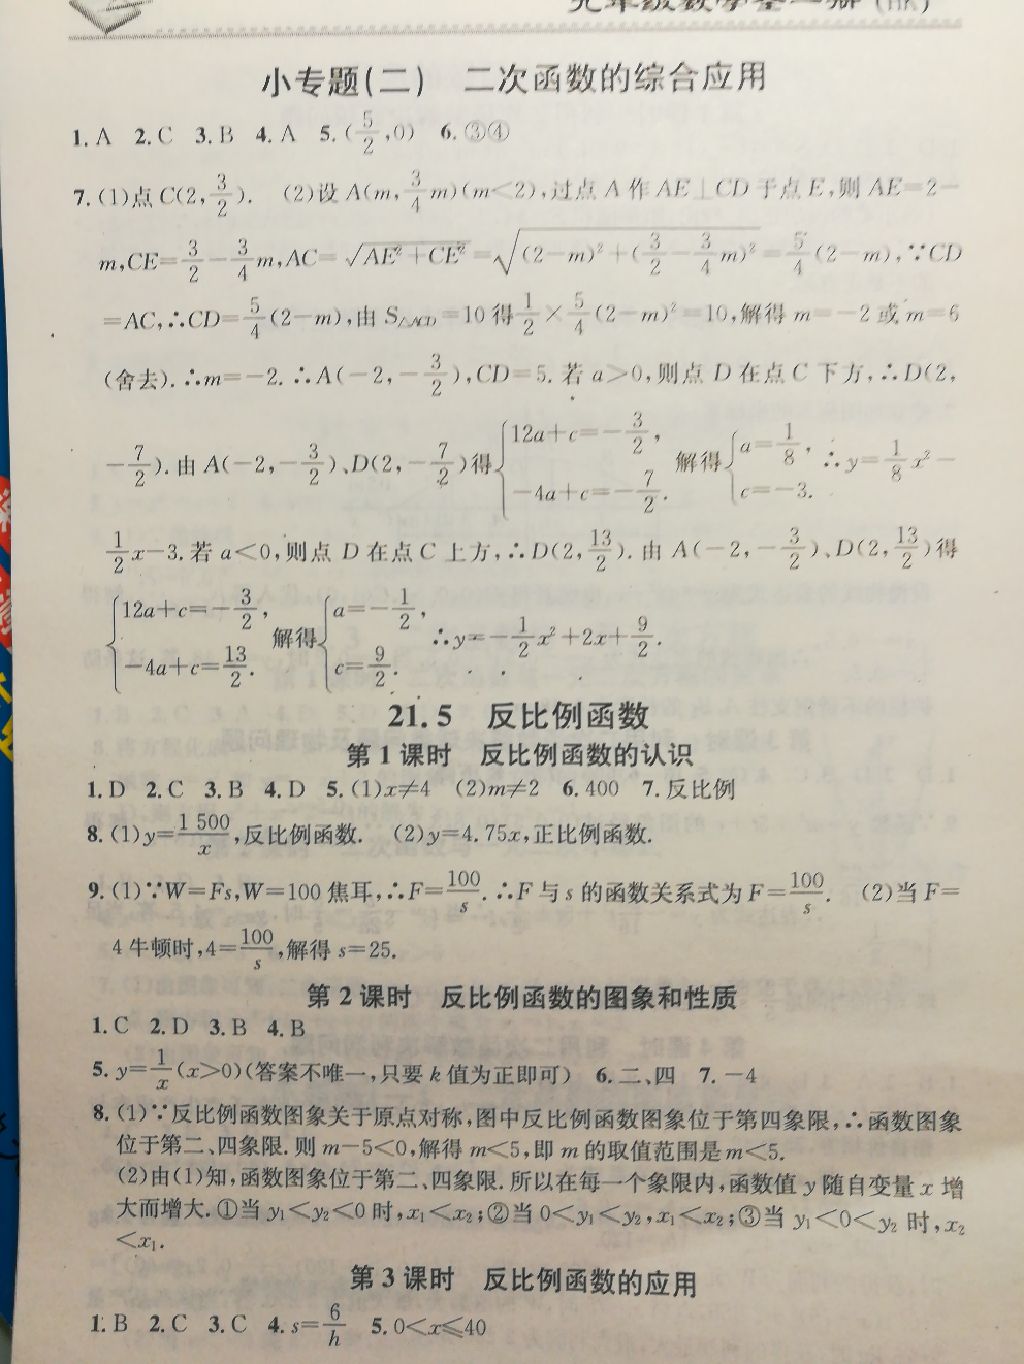 九年级数学全一册(HK)
小专题(二) 二次函数的综合应用
1.A 2.C 3.B 4.A 5.(5/2,0) 6.③④
7.(1)点C(2,3/2). (2)设A(m,3/4m)(m<2),过点A作AE⊥CD于点E,则AE=2-
m,CE=3/2-3/4m,AC=√(AE²+CE²)=√((2-m)²+(3/2-3/4m)²)=5/4(2-m),∵CD
=AC,∴CD=5/4(2-m),由S△ACD=10得1/2×5/4(2-m)²=10,解得m=-2或m=6
(舍去).∴m=-2.∴A(-2,-3/2),CD=5.若a>0,则点D在点C下方,∴D(2,
-7/2).由A(-2,-3/2)、D(2,-7/2)得{12a+c=-3/2, -4a+c=-7/2. 解得{a=1/8, c=-3. ∴y=1/8x²-
1/2x-3.若a<0,则点D在点C上方,∴D(2,13/2).由A(-2,-3/2)、D(2,13/2)得
{12a+c=-3/2, -4a+c=13/2. 解得{a=-1/2, c=9/2. ∴y=-1/2x²+2x+9/2.
21.5 反比例函数
第1课时 反比例函数的认识
1.D 2.C 3.B 4.D 5.(1)x≠4 (2)m≠2 6.400 7.反比例
8.(1)y=1 500/x,反比例函数. (2)y=4.75x,正比例函数.
9.(1)∵W=Fs,W=100焦耳,∴F=100/s.∴F与s的函数关系式为F=100/s. (2)当F=
4牛顿时,4=100/s,解得s=25.
第2课时 反比例函数的图象和性质
1.C 2.D 3.B 4.B
5.y=1/x(x>0)(答案不唯一,只要k值为正即可) 6.二、四 7.-4
8.(1)∵反比例函数图象关于原点对称,图中反比例函数图象位于第四象限,∴函数图象
位于第二、四象限.则m-5<0,解得m<5,即m的取值范围是m<5.
(2)由(1)知,函数图象位于第二、四象限.所以在每一个象限内,函数值y随自变量x增
大而增大.①当y₁<y₂<0时,x₁<x₂;②当0<y₁<y₂,x₁<x₂;③当y₁<0<y₂时,x₂
<x₁.
第3课时 反比例函数的应用
1.B 2.C 3.C 4.s=6/h 5.0<x≤40